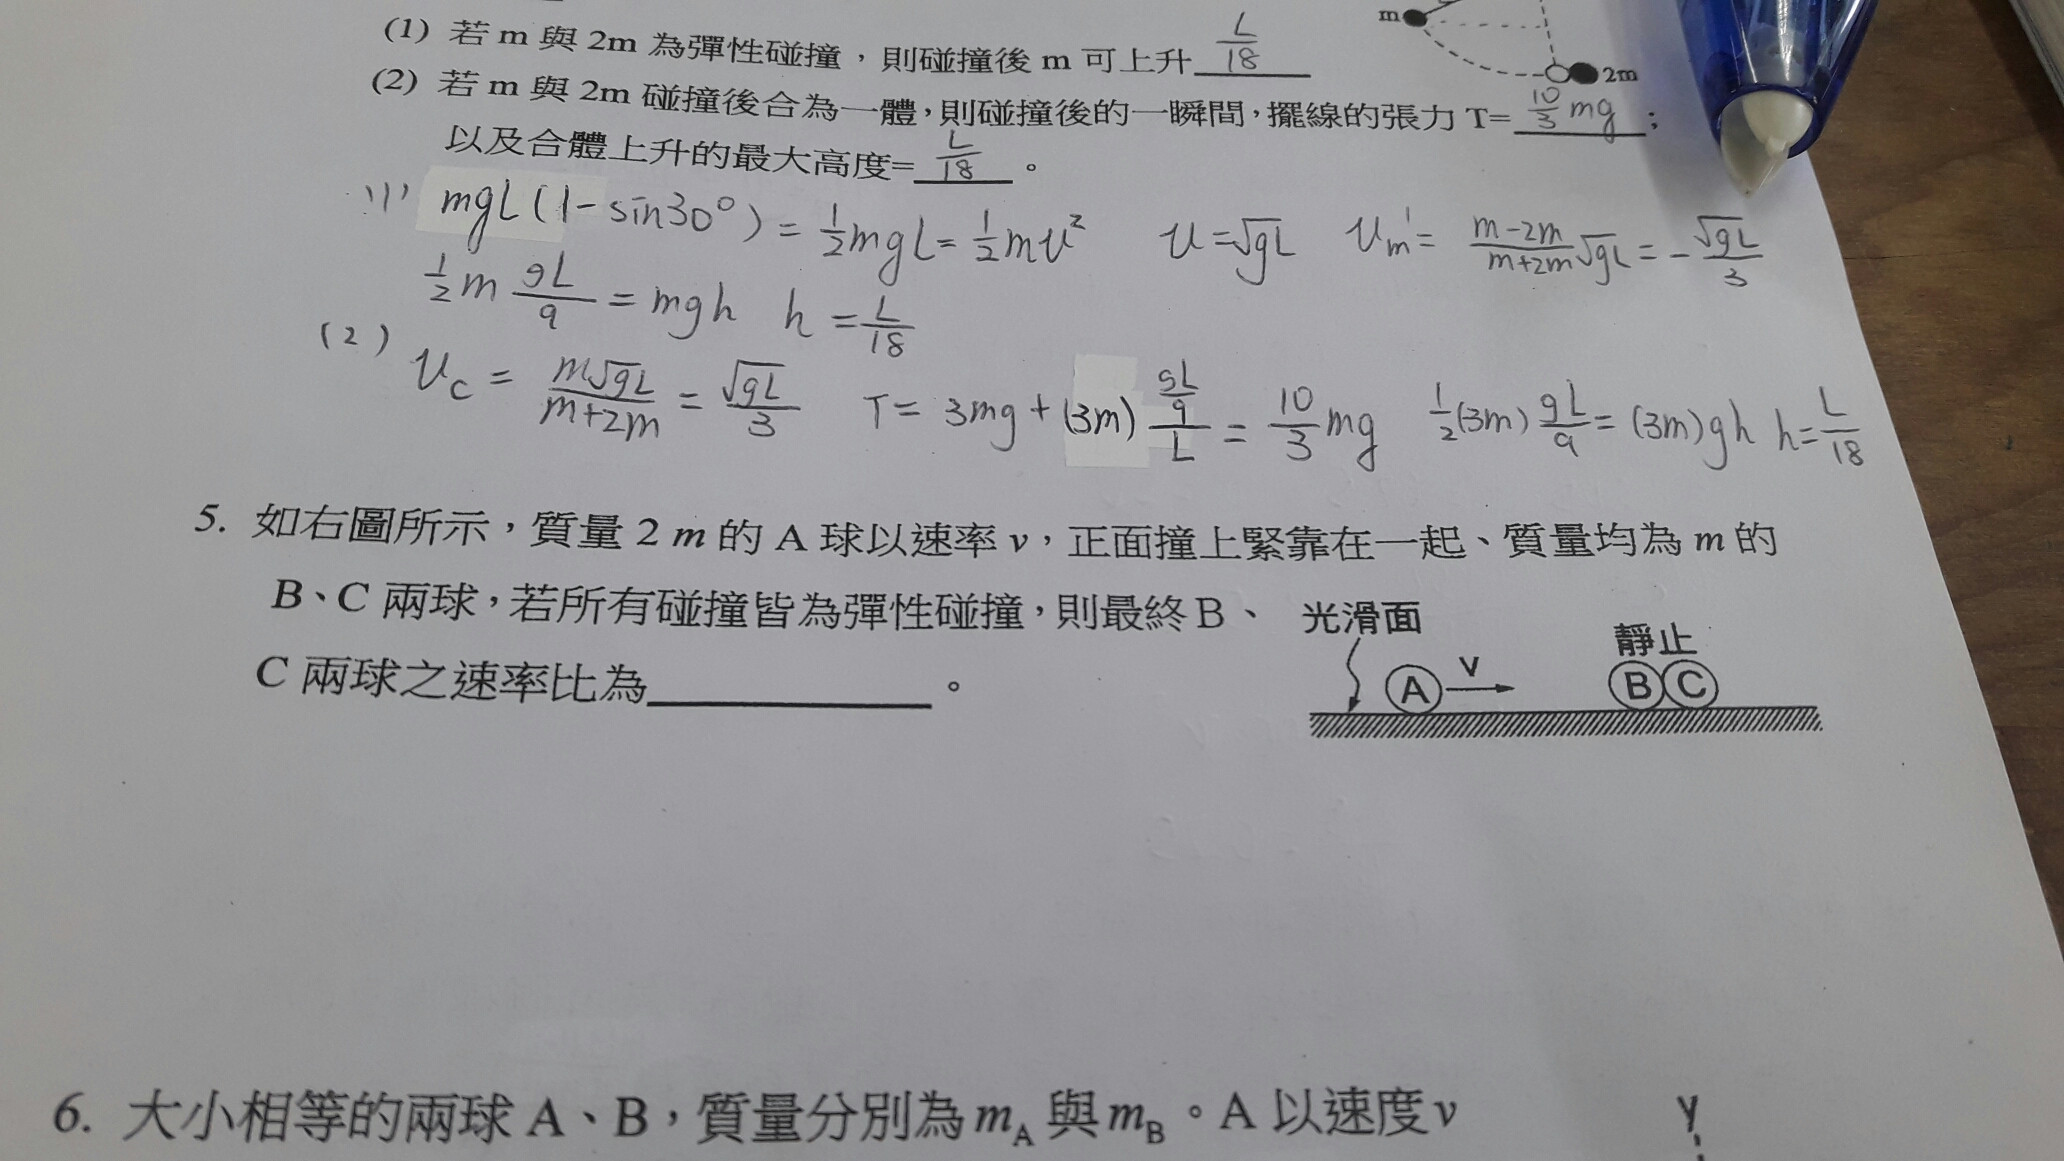 (1) 若 m 與 2m 為彈性碰撞，則碰撞後 m 可上升 L/18
(2) 若 m 與 2m 碰撞後合為一體，則碰撞後的一瞬間，擺線的張力 T= 10/3 mg ；
以及合體上升的最大高度= L/18 。
m
2m
(1) mgL(1-sin30°) = 1/2 mgL = 1/2 mv² v=√gL vm' = (m-2m)/(m+2m) √gL = -√gL/3
1/2 m gL/9 = mgh h = L/18
(2) vc = m√gL/(m+2m) = √gL/3 T= 3mg + (3m) (gL/9)/L = 10/3 mg 1/2 (3m) gL/9 = (3m)gh h= L/18
5. 如右圖所示，質量 2 m 的 A 球以速率 v，正面撞上緊靠在一起、質量均為 m 的
B、C 兩球，若所有碰撞皆為彈性碰撞，則最終 B、
C 兩球之速率比為 。
光滑面
靜止
A v B C
6. 大小相等的兩球 A、B，質量分別為 mA 與 mB。A 以速度 v
y